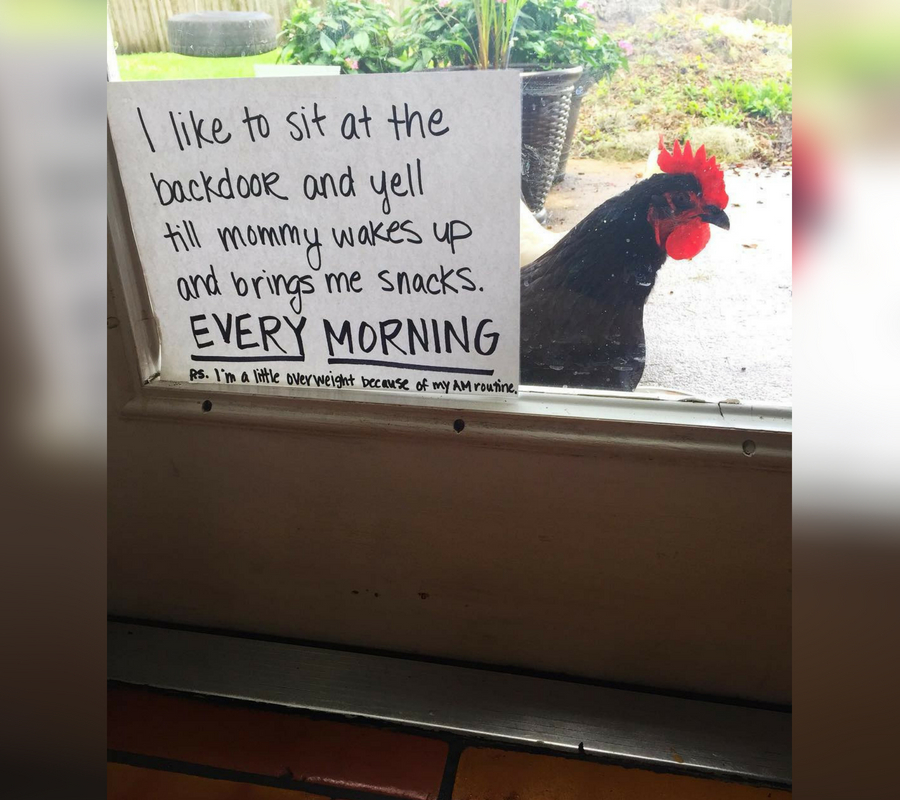 I like to sit at the
backdoor and yell
till mommy wakes up
and brings me snacks.
EVERY MORNING
PS. I'm a little overweight because of my AM routine.